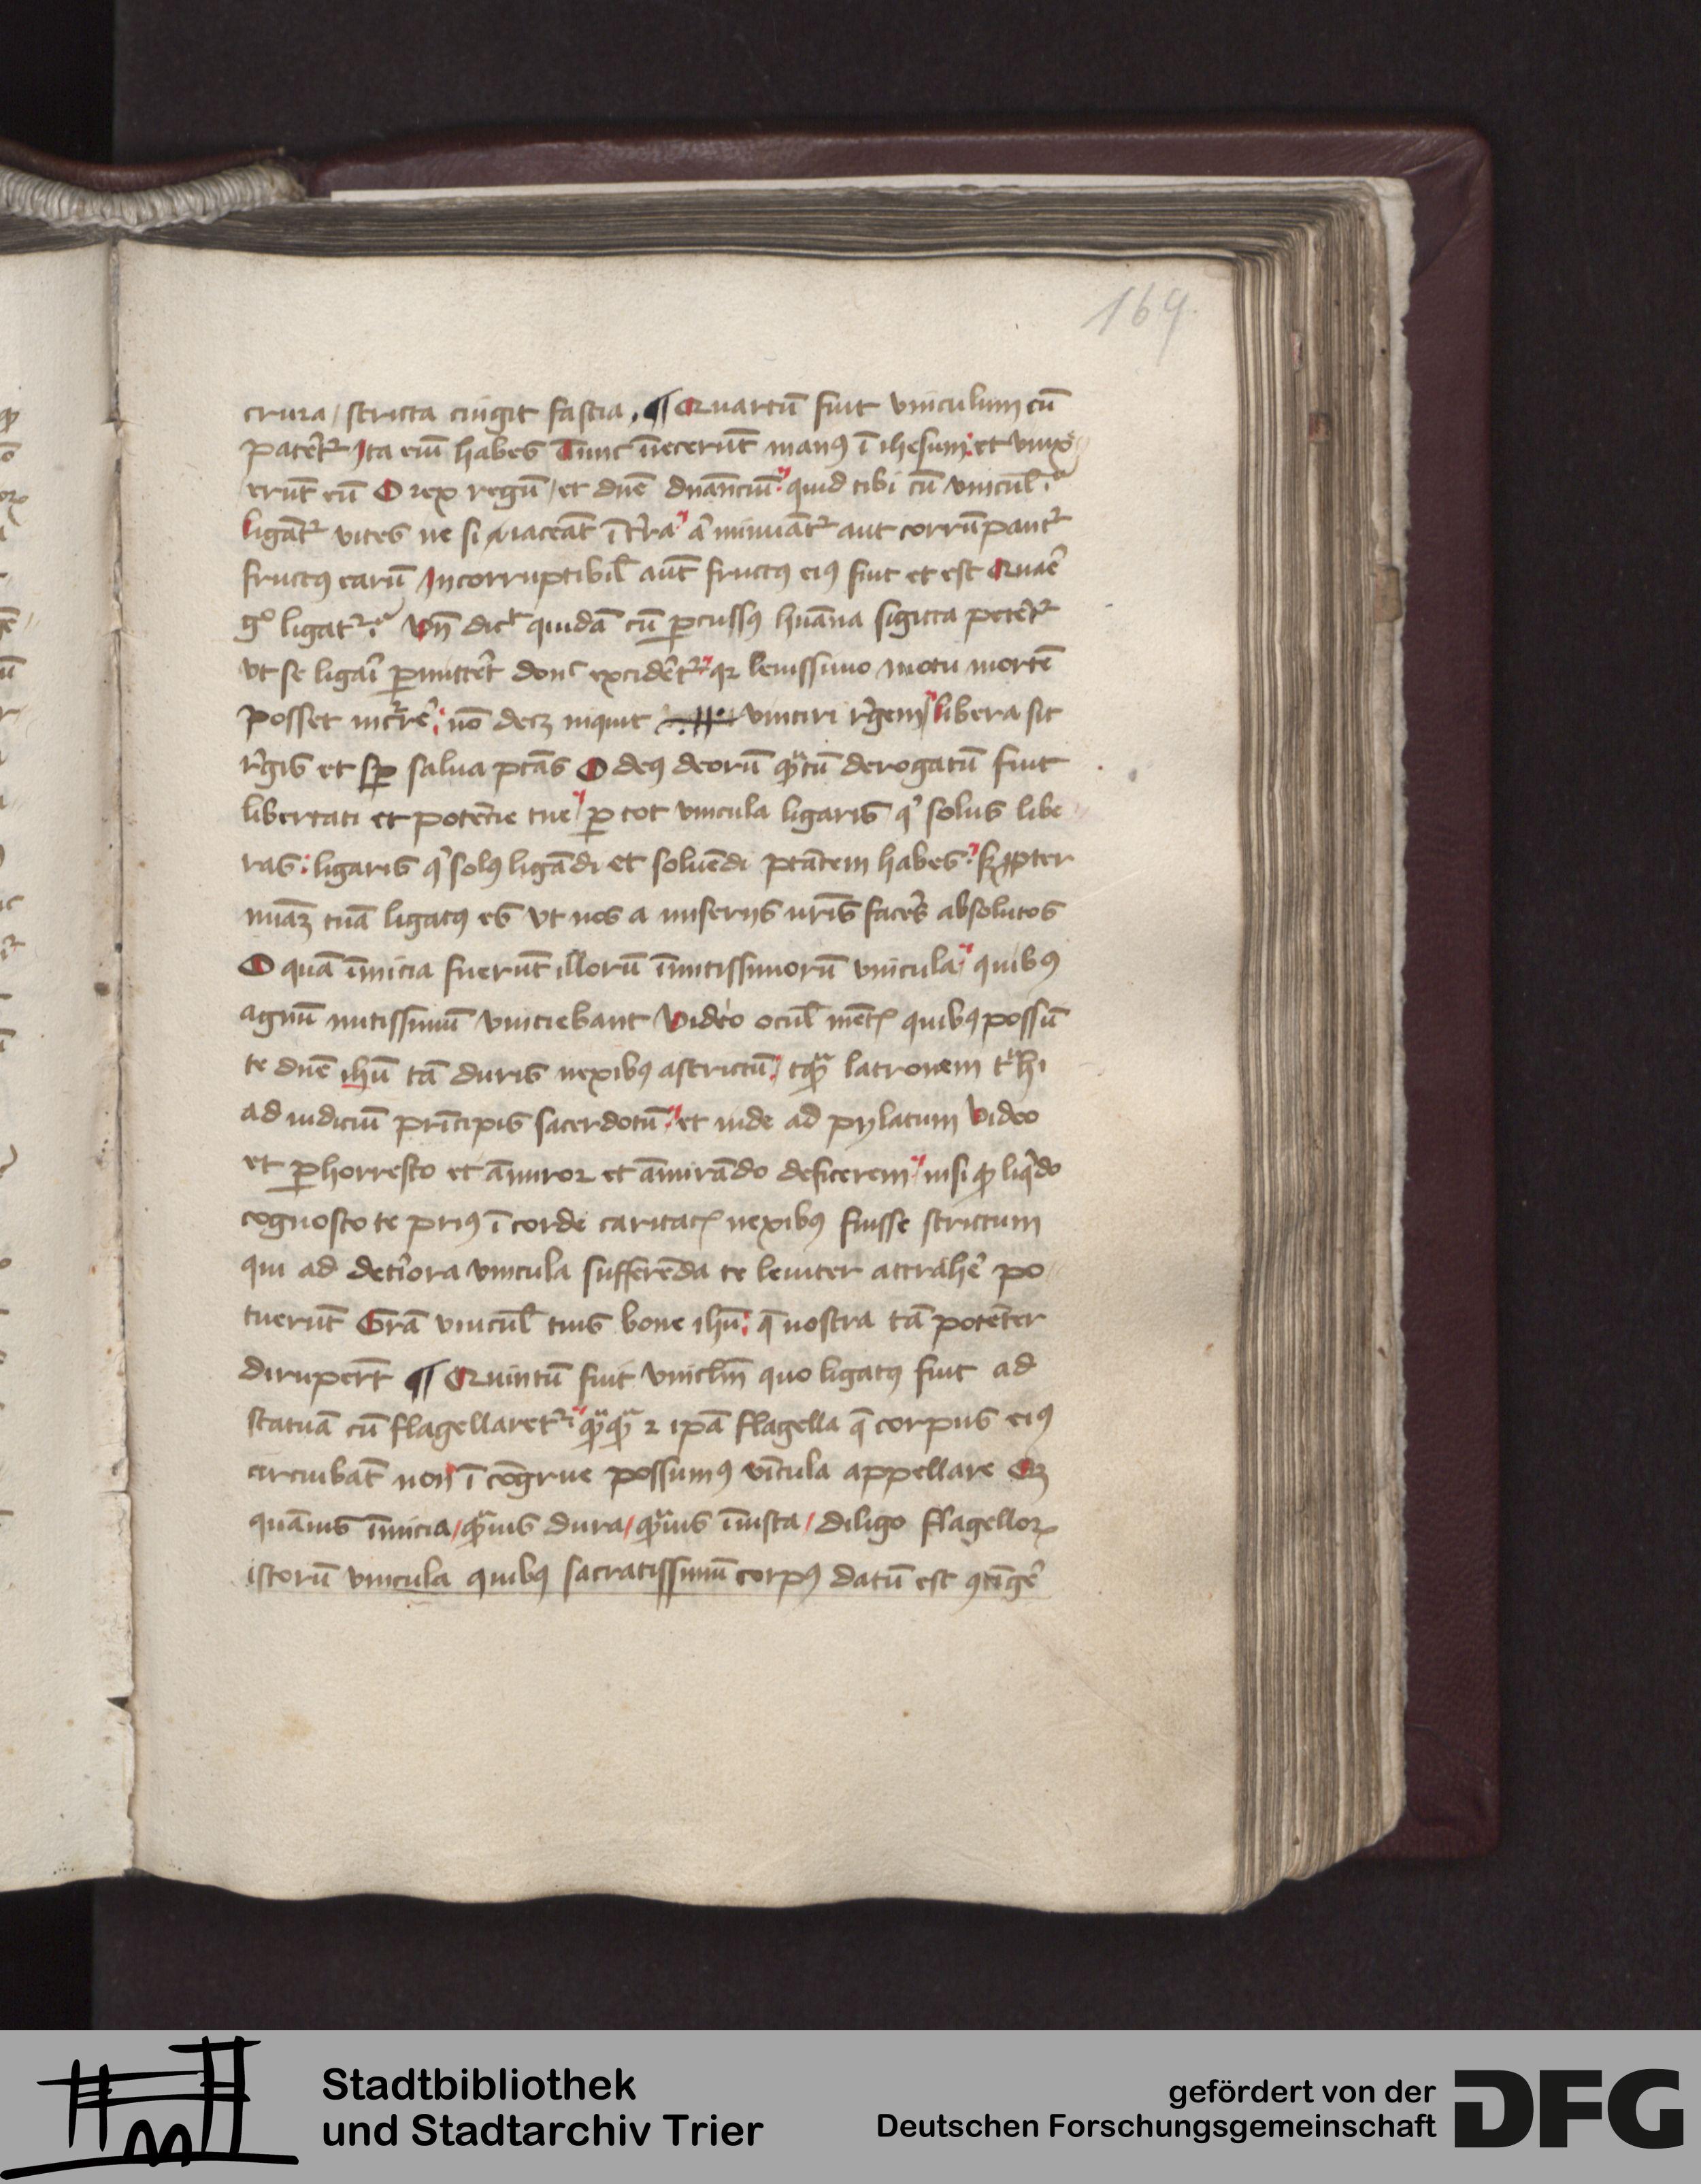 169
crura / stricta cingit fascia . ¶ Quartū fuit vinculum cū
paterēt² Ita eñ habes Tunc iniecerūt manꝰ ī ihesum : et vinx
erūt eū O rex regū / et dnē dnāncīū : quid tibi cū vincul̄ ?
ligāt² vites ne si iaceāt ī t̄ra a͞ minuāt² aut corrūpant²
fructꝰ earū Incorruptibil̄ aūt fructꝰ eiꝰ fuit et est Quare
gͦ ligat² ? Vn̄ dict quidā cū ꝑcussꝰ huāna sigitta petēt²
vt se ligari ꝑmittēt donᶜ excidēt² qꝛ leuissimo motu mortē
posset incrēe : nō decꝫ inquit vinciri rēgem libera sit
rēgis et sꝑ salua ptās O deꝰ deorū qᵃtū derogatū fuit
libertati et potēcie tue / ꝑ tot vincula ligaris qⁱ solus libe
ras : ligaris qⁱ solꝰ ligādi et soluēdi ptātem habes : sꝫ ꝓpter
miāꝫ tuā ligatꝰ es vt nos a miserijs nrīs facēs absolutos
O quā īmicia fuerūt illorū īmitissimorū vincula / quibꝰ
agnū mitissimū vinciebant Video ocul̄ mēt̄ quibꝰ possū
te dnē ihū tā duris nexibꝰ astrictū : tqᵃ latronem tᵃhi
ad iudiciū prīcipis sacerdotū : et inde ad pylatum Video
et ꝑhorresco et āmiror et āmirādo deficerem / nisi qꝫ liqⁱdo
cognosco te priꝰ ī corde caritat̄ nexibꝰ fuisse strictum
qui ad deteriora vincula sufferēda te leuiter attrahē po
tuerūt Grā vincul̄ tuis bone ihū : q̄ nostra tā potēter
dirupert̄ ¶ Quintū fuit vinclm̄ quo ligatꝰ fuit ad
statuā cū flagellaret² : qᵃqᵃ ⁊ ipā flagella q̄ corpus eiꝰ
circuibāt non ī cōgrue possumꝰ vīcula appellare Qꝫ
quāuis īmicia / qᵃuis dura / qᵃuis īiusta / diligo flagelloꝝ
istorū vincula quibꝰ sacratissimū corpꝰ datū est ꝯtīgē
Stadtbibliothek
und Stadtarchiv Trier
gefördert von der
Deutschen Forschungsgemeinschaft
DFG